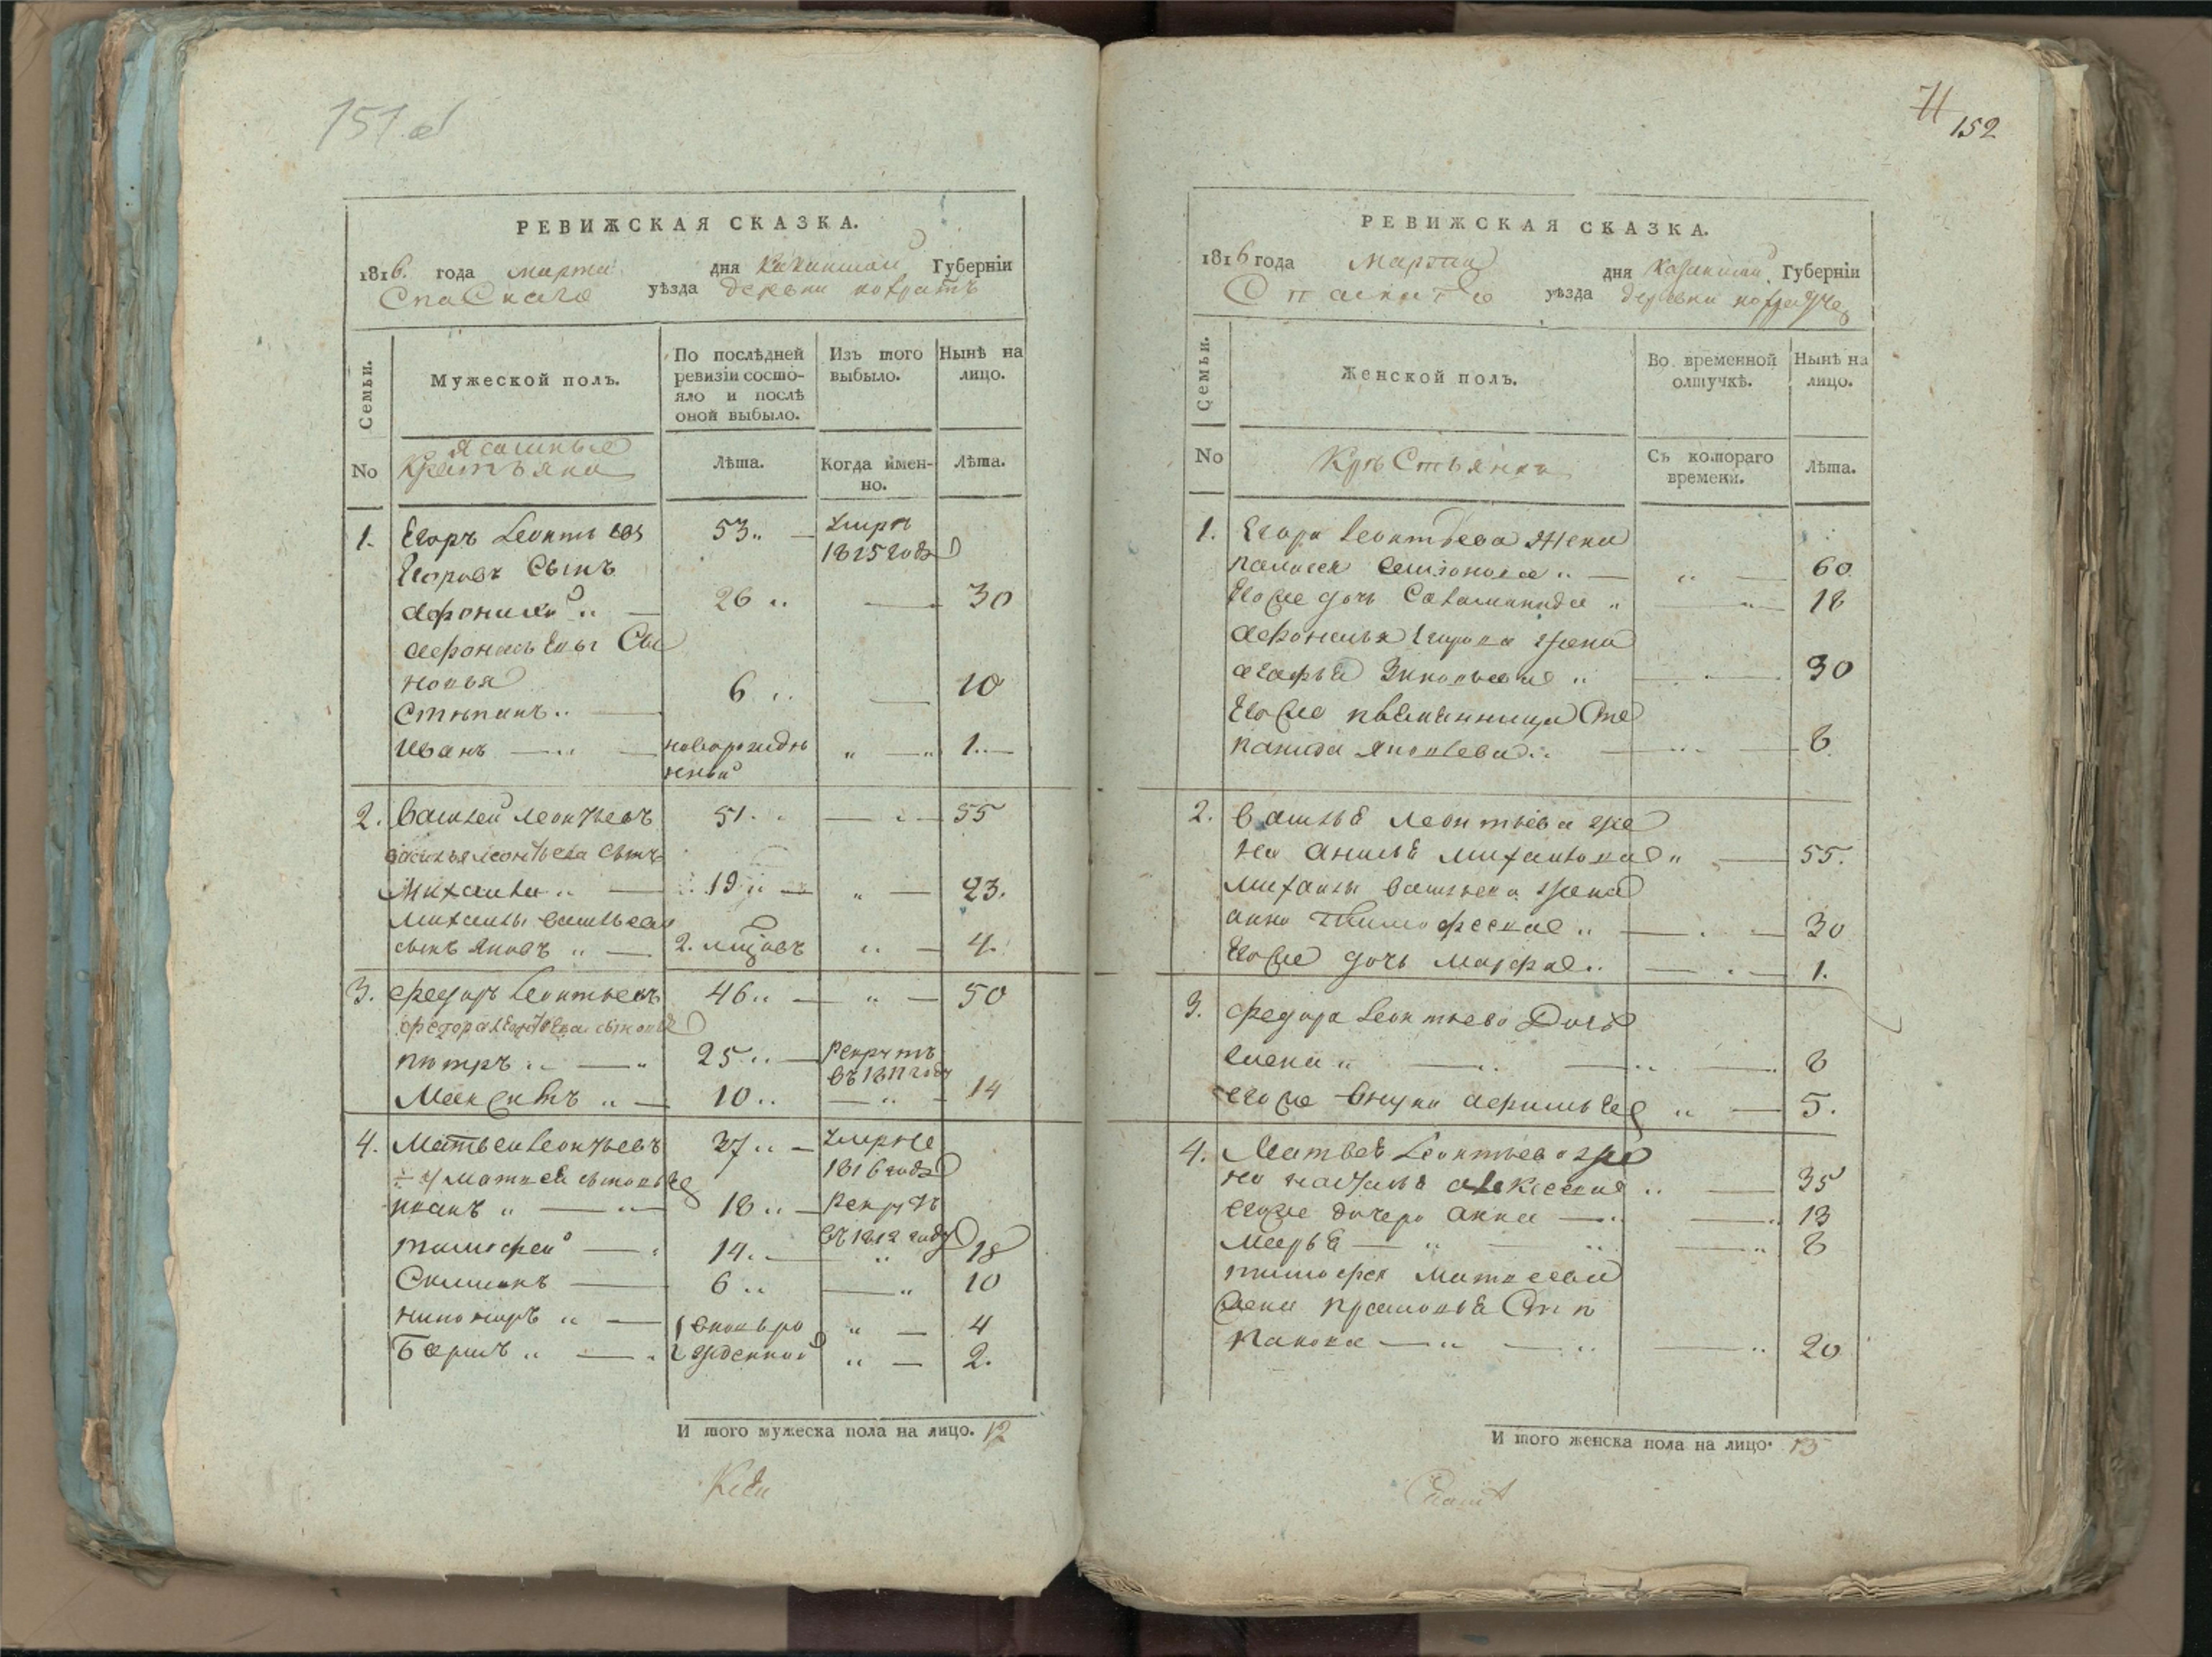 151 об
РЕВИЖСКАЯ СКАЗКА.
1816. года марта дня Казанской Губернїи
Спаскаго уѣзда деревни
Семьи.
Мужеской полъ.
По послѣдней ревизїи состо-
яло и послѣ
оной выбыло.
Изъ того
выбыло.
Нынѣ на
лицо.
No
Ясашные
Лѣта.
Когда имен-
но.
Лѣта.
1. Егоръ Леонтьевъ 53 „ — умре
1815 года
Егоровъ Сынъ
Афонасей „ — 26 „ — 30
Афонасьевы Сы
новья
Степанъ „ — 6 „ — 10
Иванъ — „ — новорожде „ — „ 1. —
нной
2. Василей Леонтьевъ 51. „ — „ — 55
Василья Леонтьева сынъ
Михаила „ — 19 „ — „ — 23.
Михайлы Васильева
сынъ Яковъ „ — 2. мцовъ „ — 4.
3. Федоръ Леонтьевъ 46 „ — „ — 50
Федора Леонтьева сыновье
Петръ „ — „ 25 „ — Рекрутъ
въ 1811 году
„ — 10 „ — „ — 14
4. Матвей Леонтьевъ 37 „ — умре
1816 года
Матвея сыновье
Иванъ „ — „ 18 „ — Рекрутъ
въ 1812 году
Тимофей — „ 14. — „ 18
Симионъ — 6 „ — „ 10
Никифоръ „ — вновьро „ — 4
Борисъ „ — „ жденной „ — 2.
И того мужеска пола на лицо. 12
71
152
РЕВИЖСКАЯ СКАЗКА.
1816 года марта дня Казанской Губернїи
Спаскаго уѣзда деревни
Семьи.
Женской полъ.
Во временной
отлучкѣ.
Нынѣ на
лицо.
No
Крестьянки
Съ котораго
времени.
Лѣта.
1. Егора Леонтьева жена
Пелагея Семионова „ — „ — 60.
Егоже дочь Саламанида „ — „ — 18
Афонасья Егорова жена
Агафья „ — 30
Егоже племянница Сте
панида Яковлева „ — „ — 8.
2. Василья Леонтьева же
на Анисья Михайлова „ — 55.
Михайлы Васильева жена
Анна Тимофеева „ — . — 30
Егоже дочь Марфа „ — . — 1.
3. Федора Леонтьева Дочь
Елена „ — „ — „ — . 8
егоже внука Афимья „ — 5.
4. Матвея Леонтьева же
на Наталья Алексеева „ — 35
егоже дочери Анна — „ — „ 13
Марья — „ — „ — „ 8
Тимофея Матвеева
жена Прасковья Сте
панова — „ — „ — „ 20
И того женска пола на лицо. 13